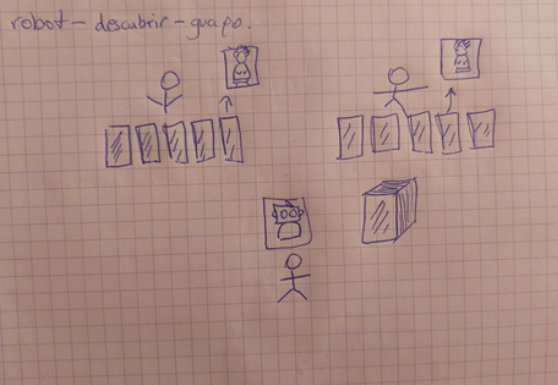 robot - descubrir - guapo.